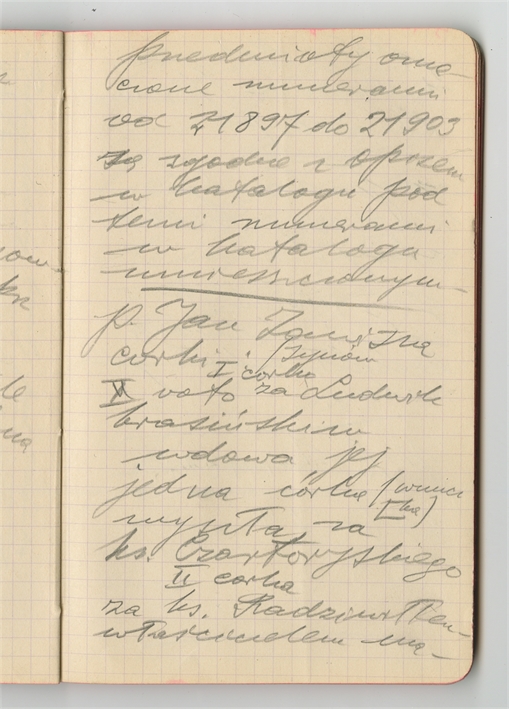 przedmioty ozna-
czone numerami
od 21897 do 21903
są zgodne z opisem
w katalogu pod
temi numerami
w katalogu
umieszczonym
p. Jan Zawisza
córki I córka
II voto za Ludwik
Krasińskim
wdowa jej
jedna córka (wnucz
ka)
wyszła za
ks. Czartoryskiego
II córka
za ks. Radziwiłłem
właścicielem